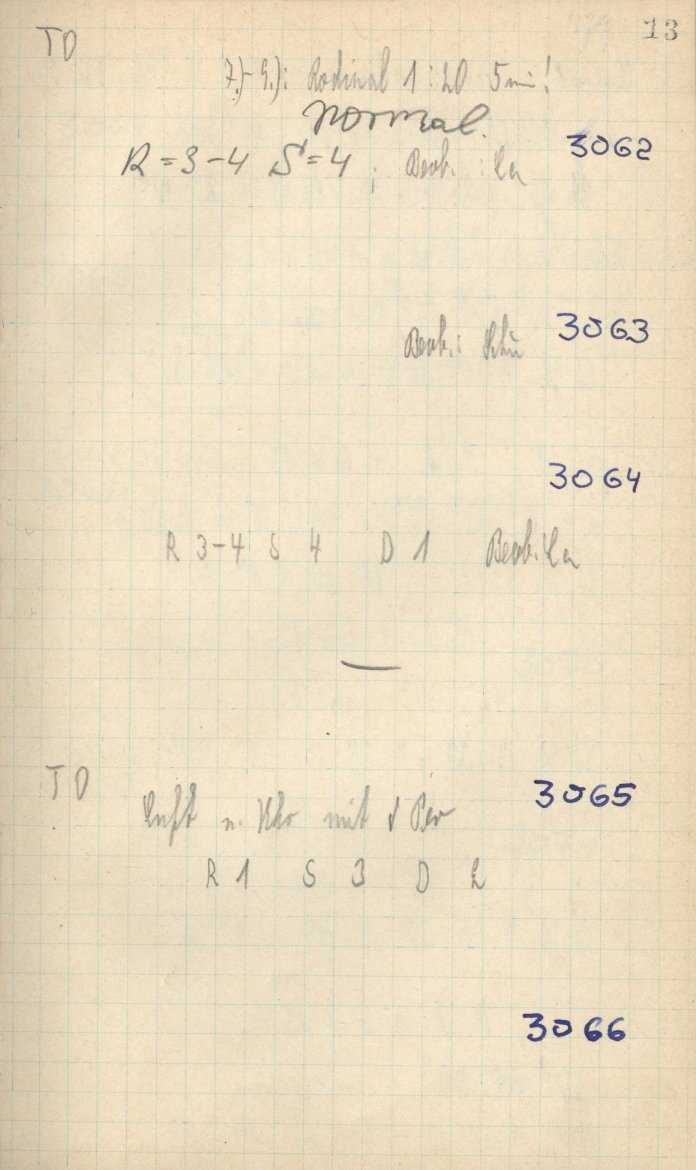 13
TD
7.)-9.): Rodinal 1:20 5 min!
Normal.
3062
R=3-4 S=4 ; Beob.: La
3063
Beob.:
3064
R 3-4 S 4 D 1 Beob. La
TD
3065
Luft u. Uhr mit
R 1 S 3 D 2
3066